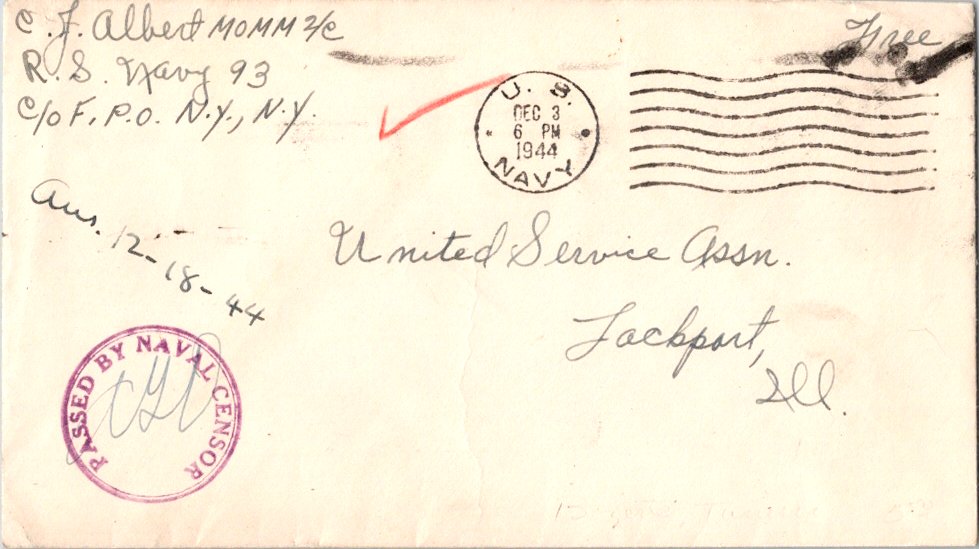 C. J. Albert MOMM 2/C
R. S. Navy 93
C/o F.P.O. N.Y., N.Y.
Free
U. S.
DEC 3
6 PM
1944
NAVY
Ans. 12-18-44
United Service Assn.
Lockport,
Ill.
PASSED BY NAVAL CENSOR